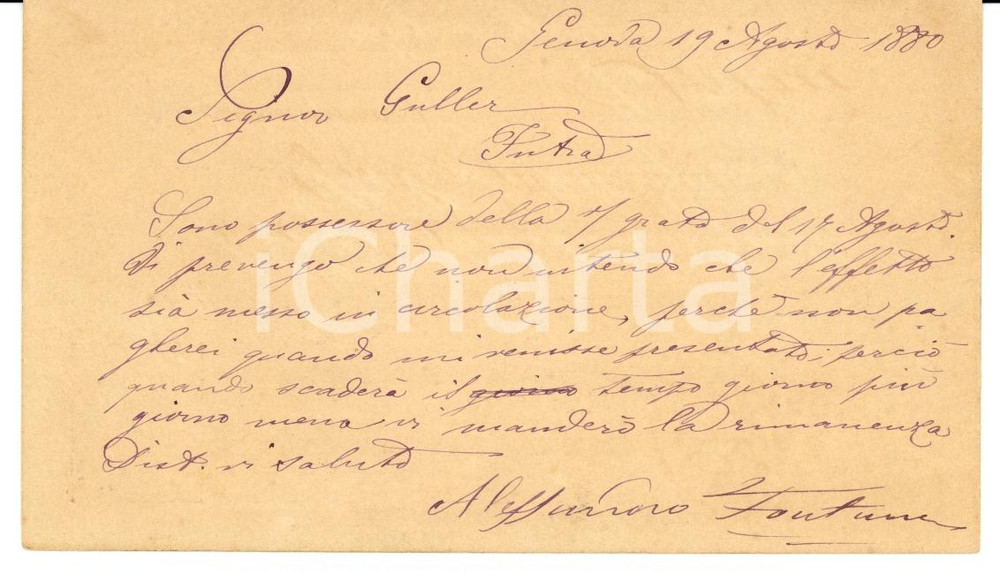 Genova 19 Agosto 1880
Signor Guller
Intra
Sono possessore della v/ grata del 17 Agosto.
Vi prevengo che non intendo che l'effetto
sia messo in circolazione, perchè non pa
gherei quando mi venisse presentato; perciò
quando scaderà il giorno tempo giorno più
giorno meno vi manderò la rimanenza
Dist. vi saluto
Alessandro Fontana
iCharta